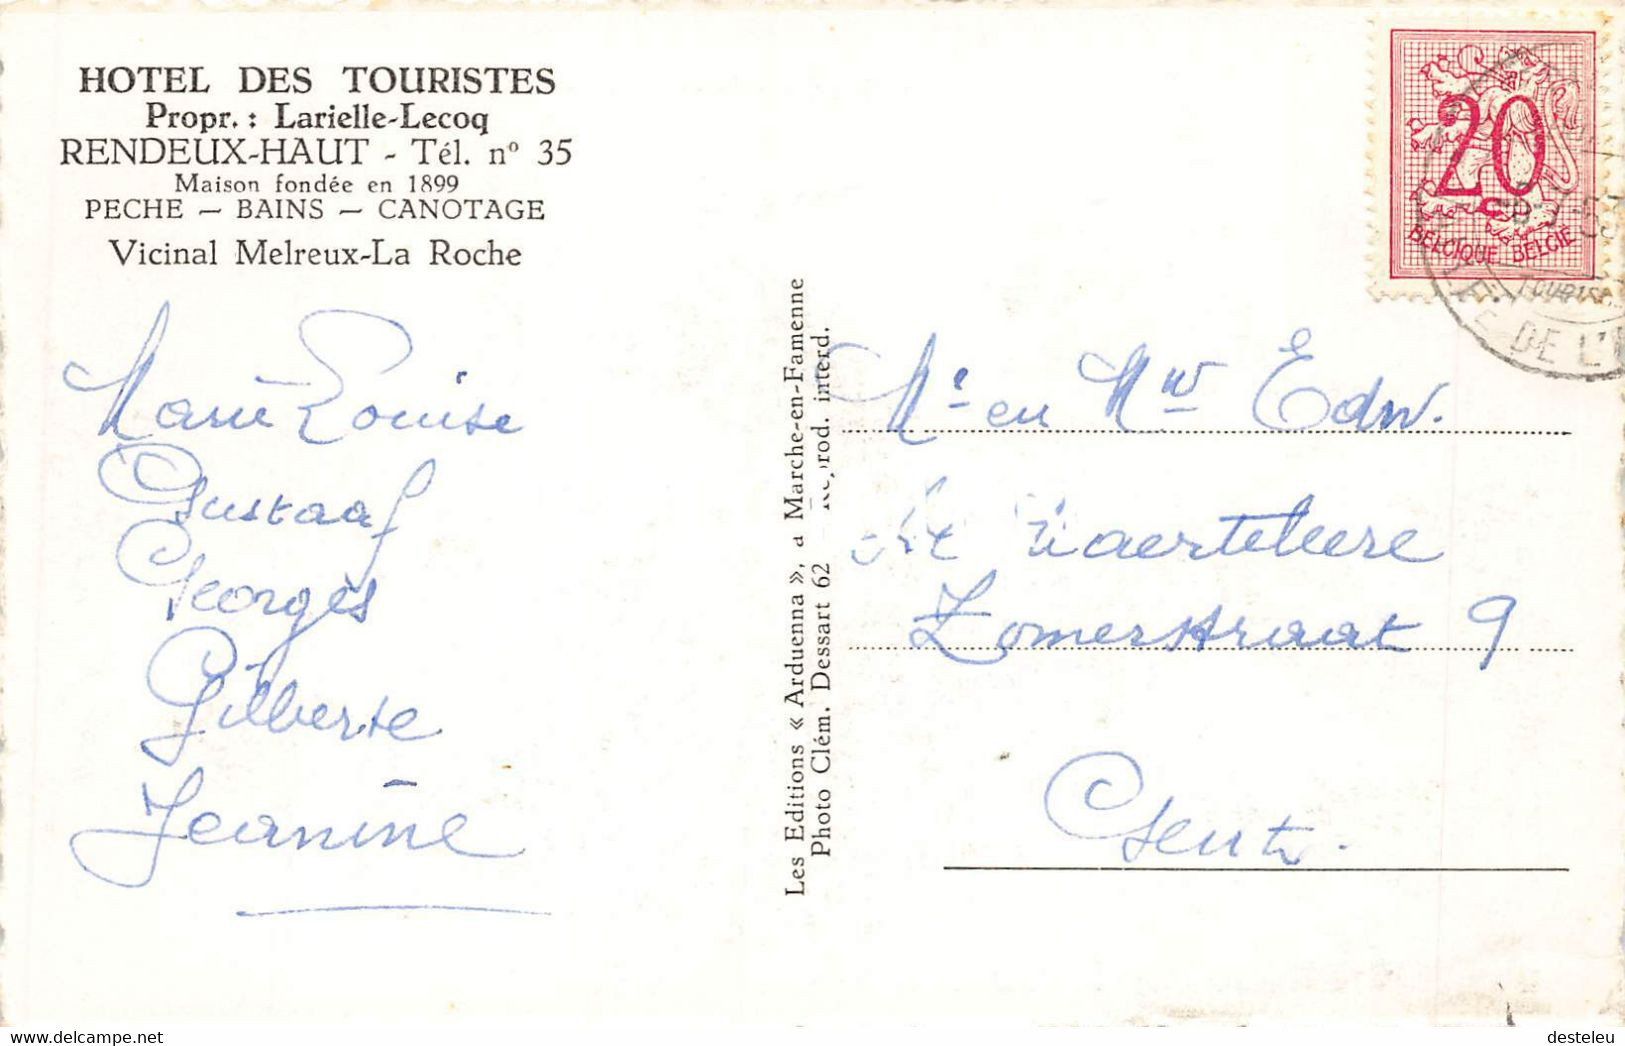 HOTEL DES TOURISTES
Propr. : Larielle-Lecoq
RENDEUX-HAUT - Tél. n° 35
Maison fondée en 1899
PECHE — BAINS — CANOTAGE
Vicinal Melreux-La Roche
Marie Louise
Gustaaf
Georges
Gilberte
Jeanine
Les Editions « Arduenna », à Marche-en-Famenne
Photo Clém. Dessart 62 - Reprod. interd.
20
BELGIQUE BELGIË
DE L'
Mr en Mw Edw.
Zomerstraat 9
Gent.
delcampe.net
desteleu